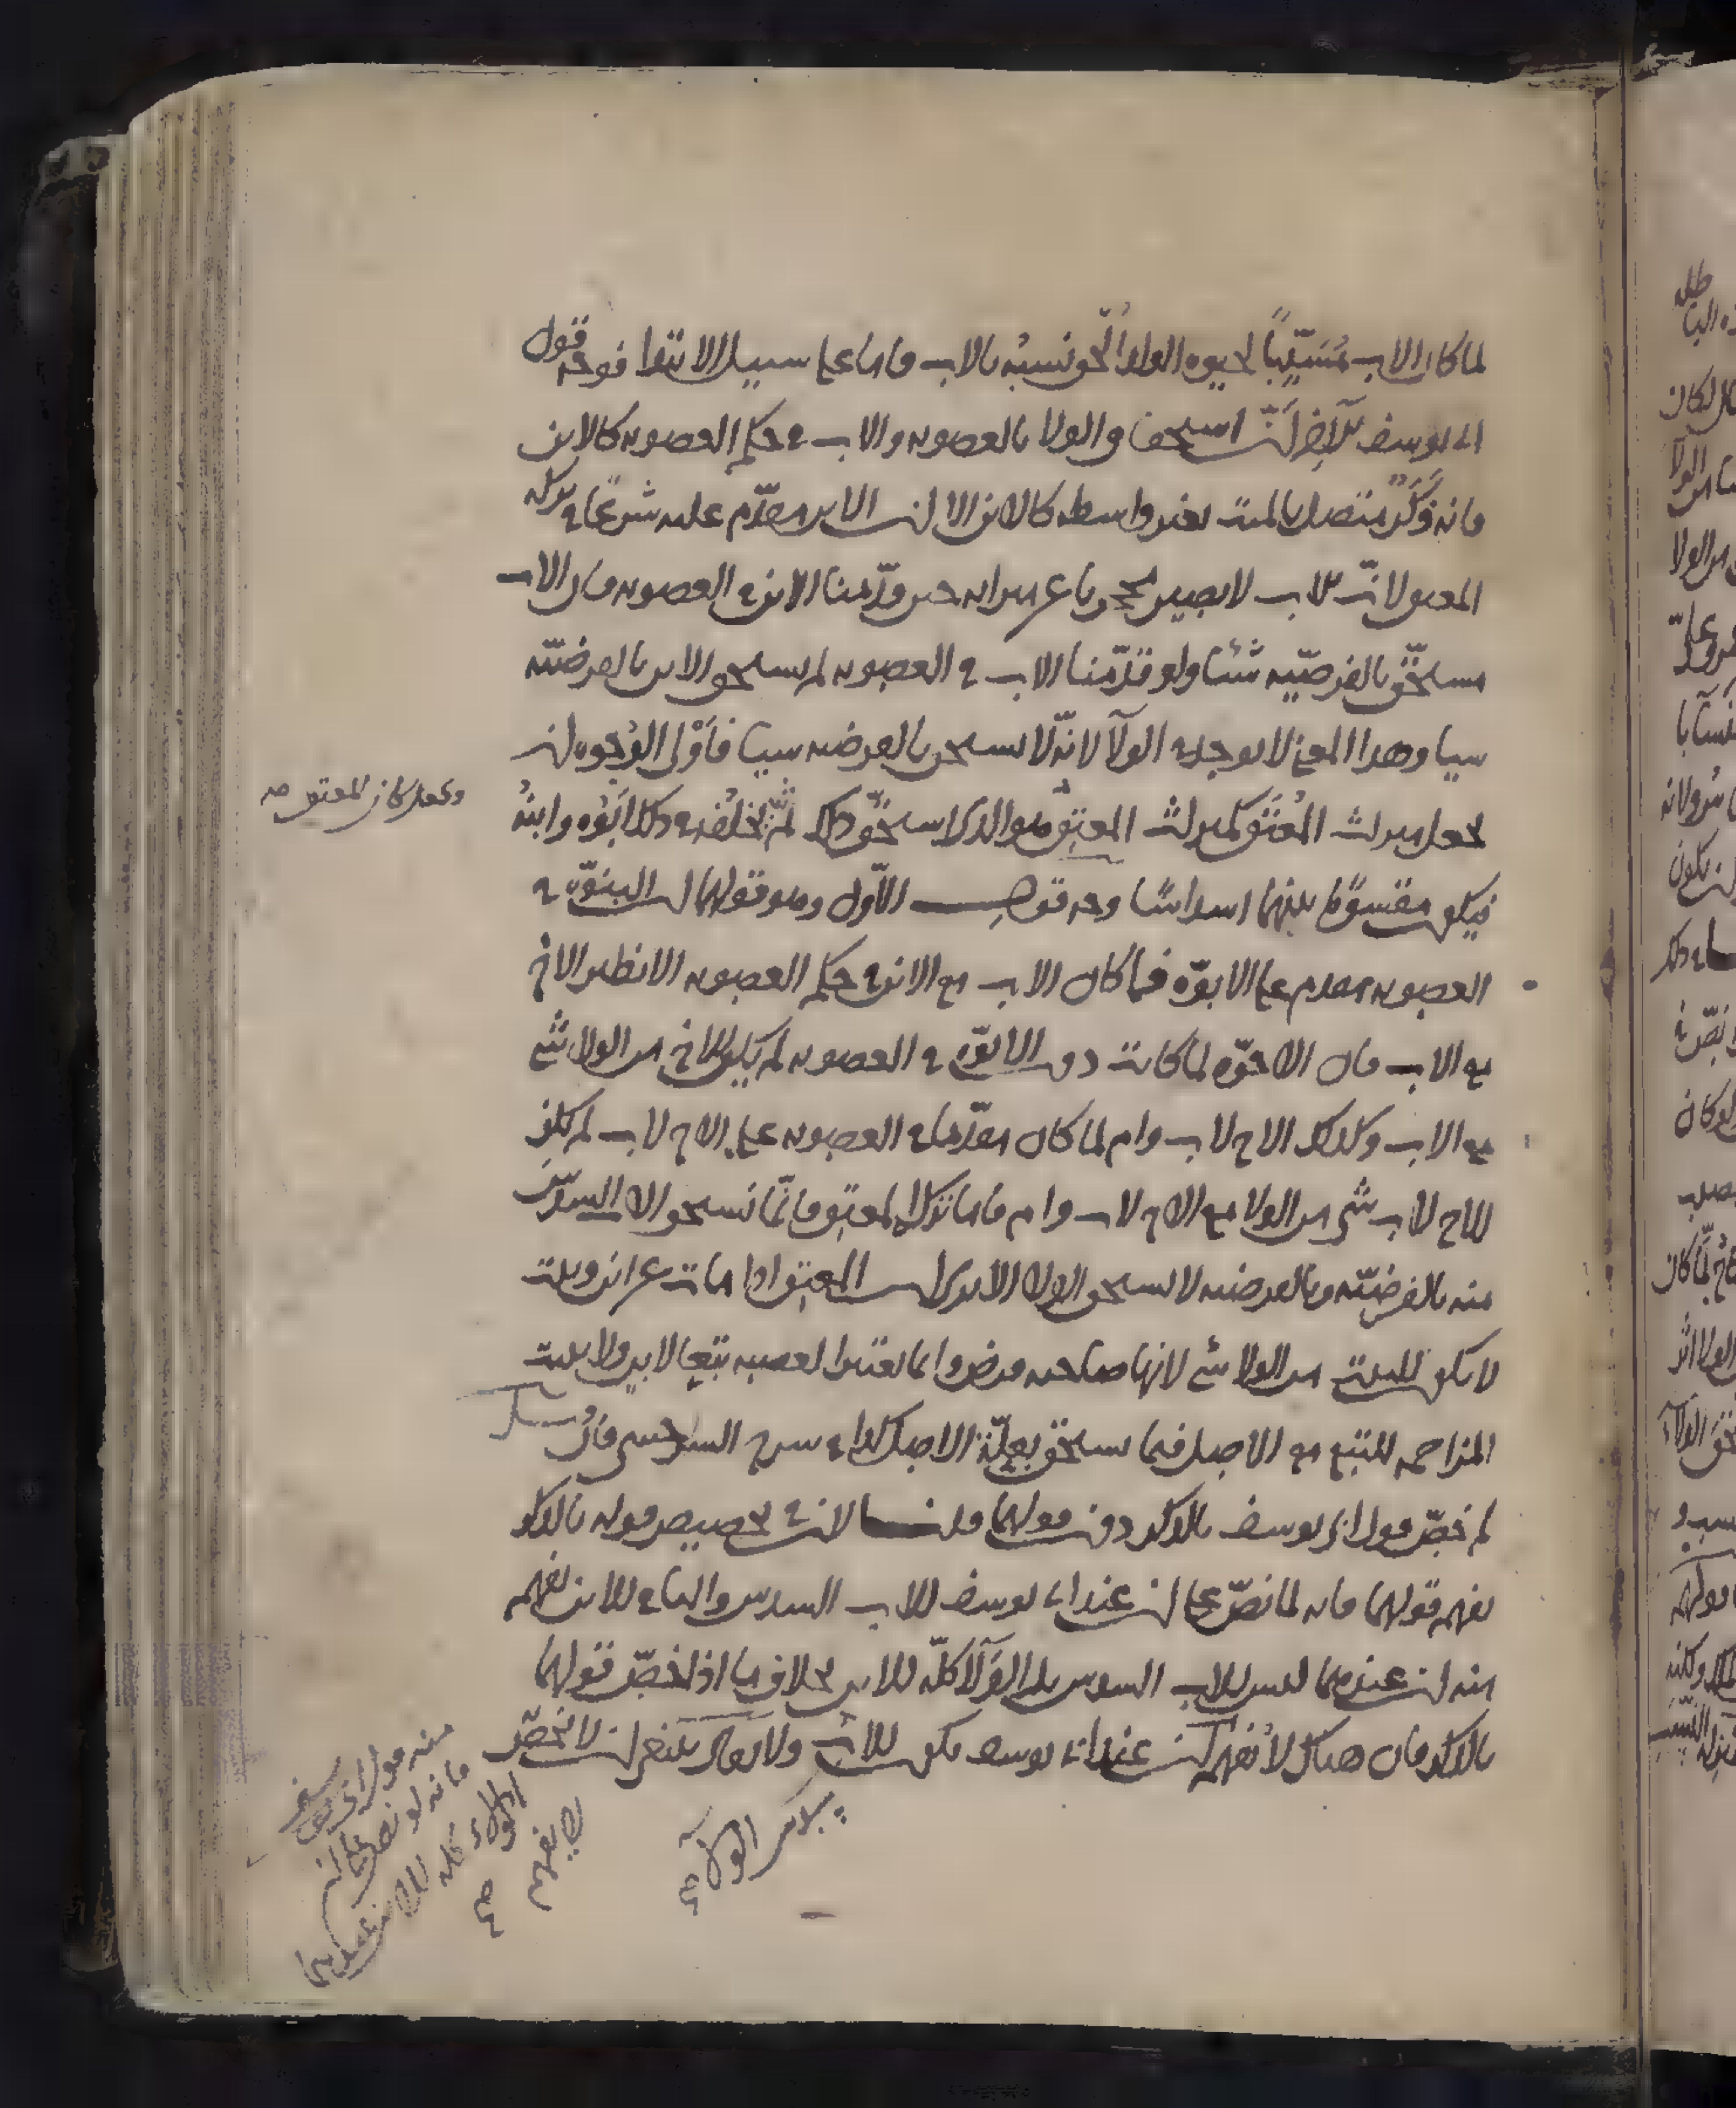 لما كان الاب مسببا لحيوه الولد الحق نسبه بالاب واما على سبيل الابتدا فوجه قول
ابى يوسف للاب ان استحقاق الولا بالعصوبه والاب فى حكم العصوبه كالابن
فانه ذكر متصل بالميت بغير واسطه كالابن الا ان الابن مقدم عليه شرعا فى تركه
المعتق لان الاب لا يصير محجوبا عن ميراثه حين قدمنا الابن فى العصوبه فان الاب
مستحق بالفرضيه شيئا ولو قدمنا الاب فى العصوبه لم يستحق الابن بالفرضيه
شيا وهذا المعنى لا يوجد فى الولآ لانه لا يستحق بالفرضيه شيا فاولى الوجوه ان
يجعل ميراث المعتق كميراث المعتق هو الذى استحق ذلك ثم يخلفه فى ذلك ابوه وابنه
فيكون مقسوما بينهما اسداسا وجه قولهما الاول وهو قولهما ان البنوه فى
العصوبه مقدم على الابوه فما كان الاب مع الابن فى حكم العصوبه الا نظير الاخ
مع الاب فان الاخوه لما كانت دون الابوه فى العصوبه لم يكن للاخ من الولا شئ
مع الاب وكذلك الاخ لاب وام لما كان مقدما فى العصوبه على الاخ لاب لم يكن
للاخ لاب شئ من الولا مع الاخ لاب وام فاما تركه المعتق فانما نستحق الاب السدس
منه بالفرضيه وبالفرضيه لا يستحق الولا الا يرى ان المعتق اذا مات عن ابن وبنت
لا يكون للبنت من الولا شئ لانها صاحبه فرض وانما تعتبر العصبه تبعا للابن ولا يثبت
المزاحمه للتبع مع الاصل فيما يستحق بعله الاصل كذا فى شرح السرخسى فان
لم خص قول ابى يوسف بالذكر دون قولهما قلنا لان فى تخصيص قوله بالذكر
يفهم قولهما فانه لما نص على ان عند ابى يوسف للاب السدس والباقى للابن يفهم
منه ان عندهما ليس للاب السدس بل الولآ كله للابن بخلاف ما اذا خص قولهما
بالذكر فان هناك لا يفهم ان عند ابى يوسف يكون للاب ولا يقال ينبغى ان لا يخص
سدس الولاء
ويجعل كان المعتق صح
منه قول ابى يوسف
فانه لو نص على ان
الولاء كله للابن عندهما
لا يفهم
صح